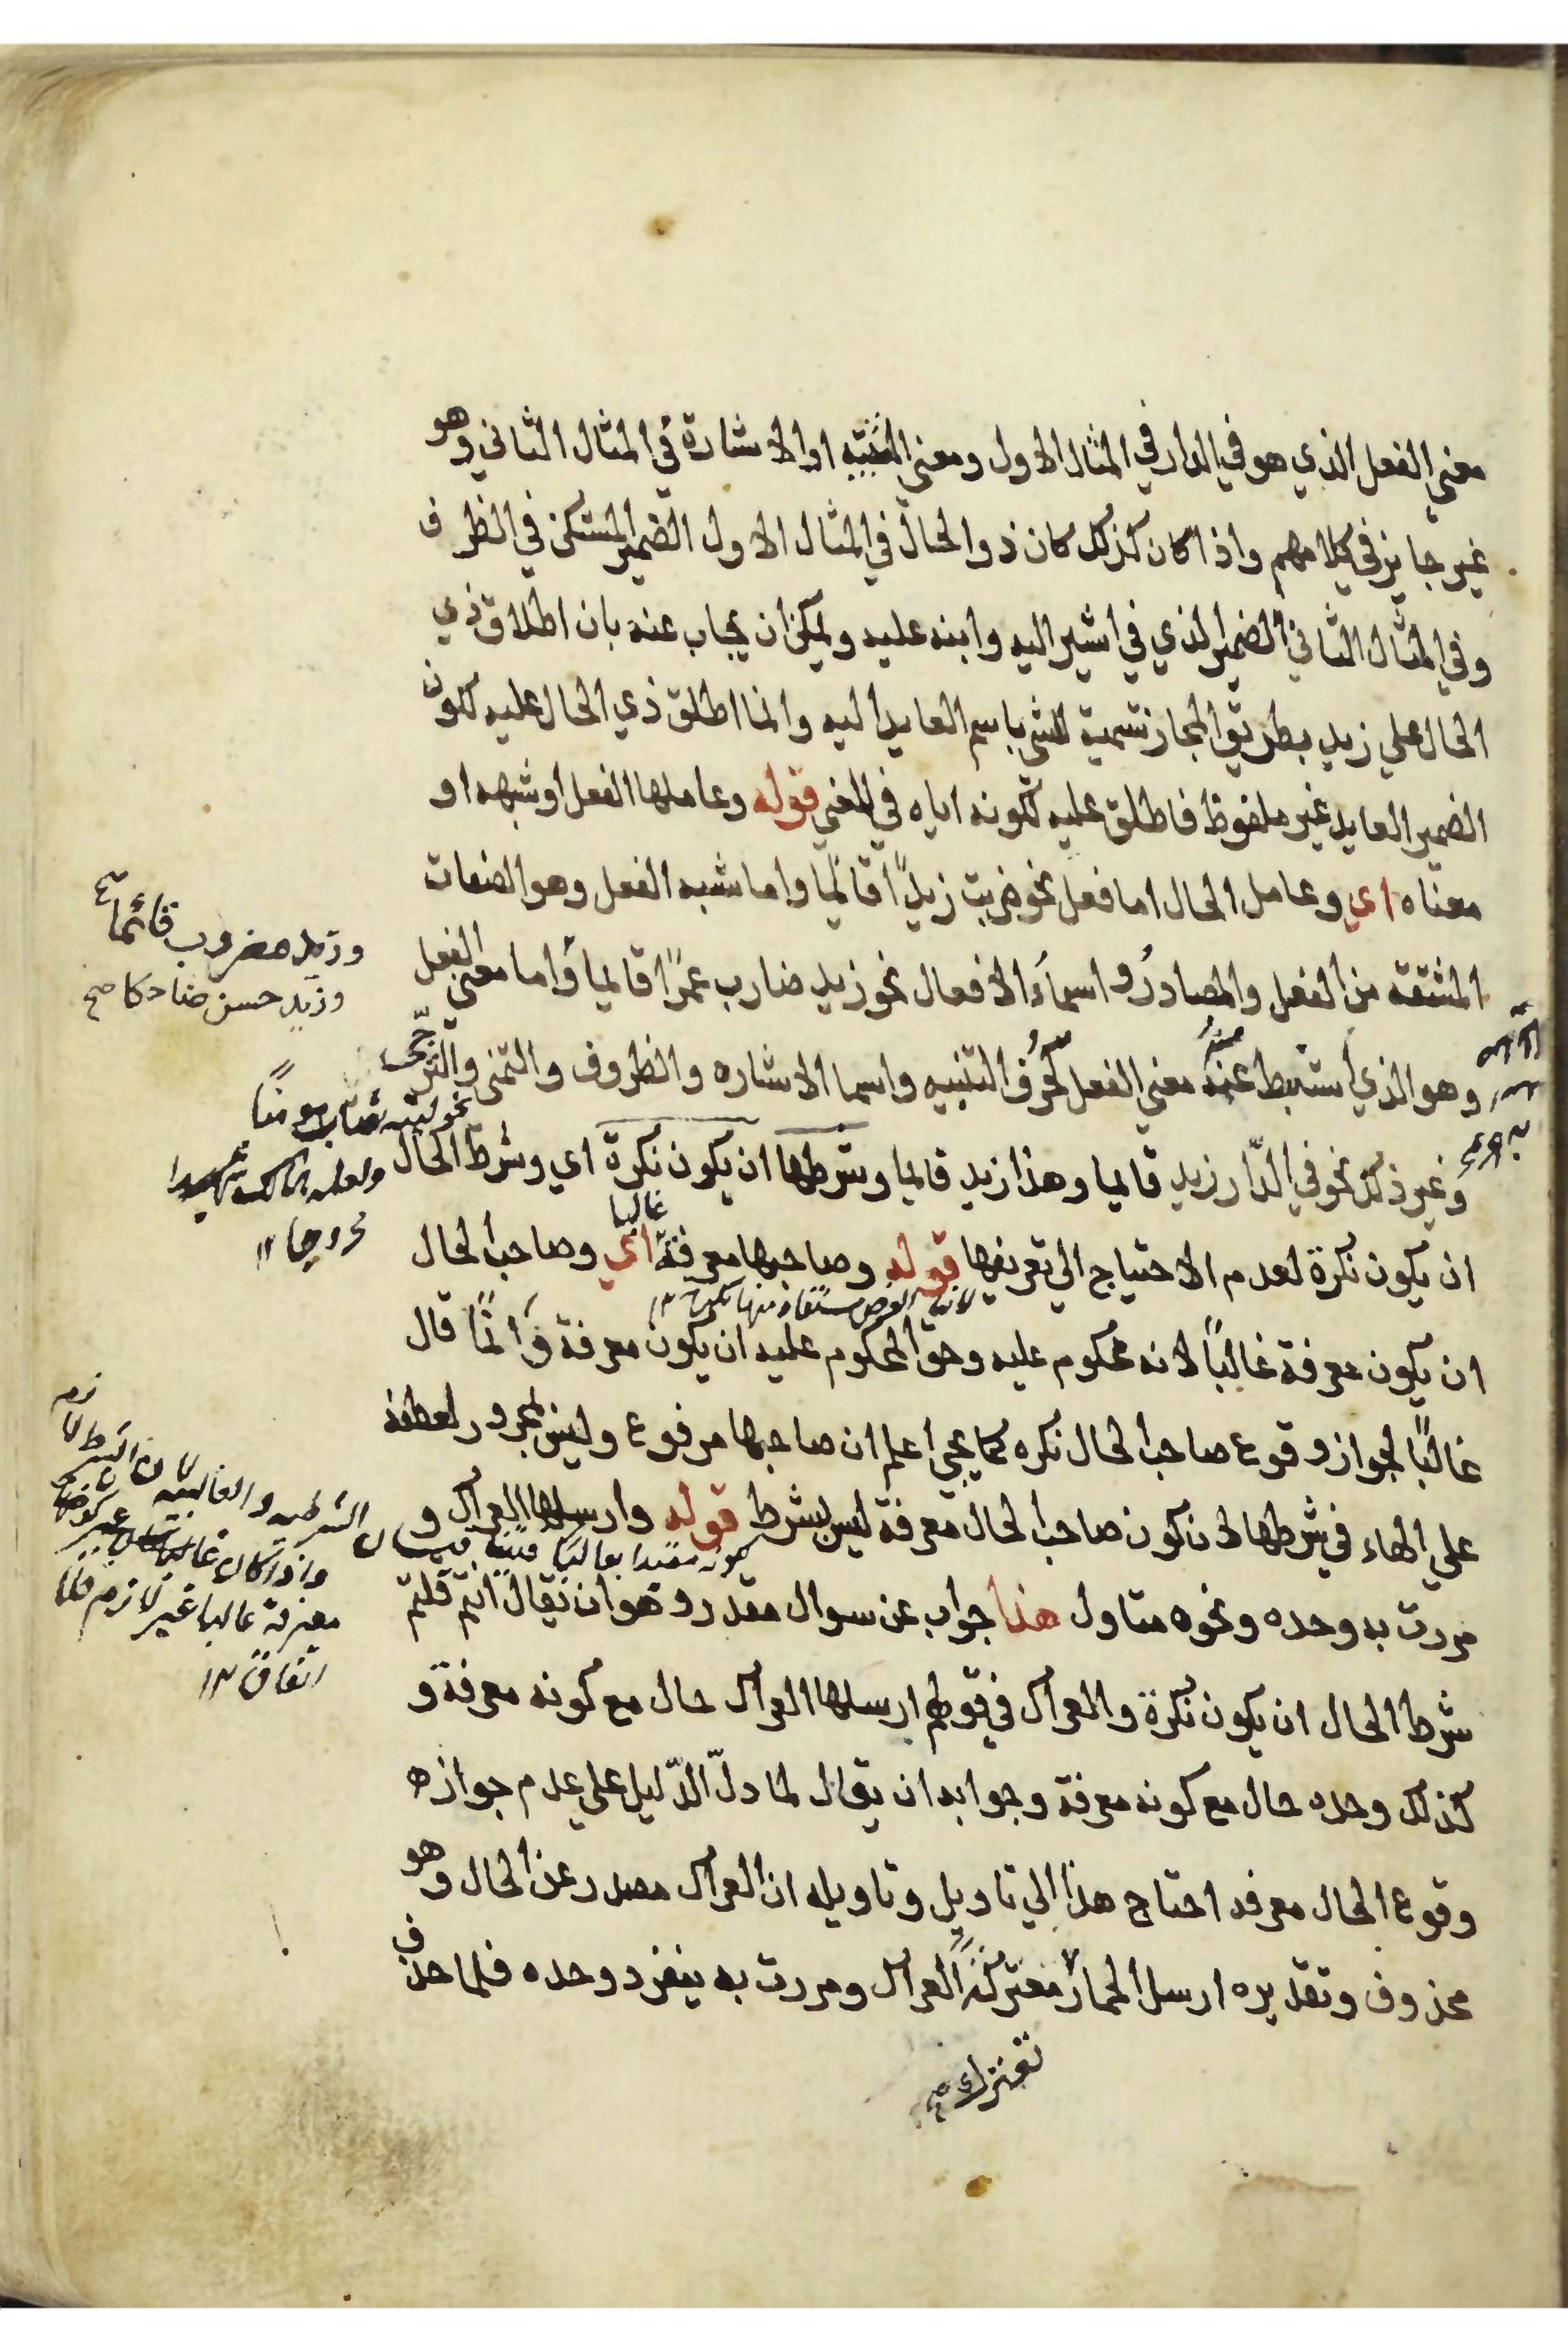 معني الفعل الذي هو في الدار في المثال الاول ومعني التنبيه او الاشارة في المثال الثاني وهو
غير جايز في كلامهم واذا كان كذلك كان ذو الحال في المثال الاول الضمير المستكن في الظرف
وفي المثال الثاني الضمير الذي في اشير اليه وانبه عليه ويمكن ان يجاب عنه بان اطلاق ذي
الحال علي زيد بطريق المجاز تسمية للشي باسم العايد اليه وانما اطلق ذي الحال عليه لكون
الضمير العايد غير ملفوظ فاطلق عليه لكونه اياه في المعني قوله وعاملها الفعل او شبهه او
معناه اي وعامل الحال اما فعل نحو ضربت زيدًا قائمًا واما شبه الفعل وهو الصفات
المشتقة من الفعل والمصادر واسماء الافعال نحو زيد ضارب عمرًا قايما واما معني الفعل
وهو الذي استنبط منه معني الفعل كحرف التنبيه واسما الاشاره والظروف والتمني والترجّي
وغير ذلك نحو في الدّار زيد قايما وهذا زيد قايما وشرطها ان يكون نكرة اي وشرط الحال
ان يكون نكرة لعدم الاحتياج الي تعريفها قوله وصاحبها معرفة غالبا اي وصاحب الحال
ان يكون معرفة غالبًا لانه محكوم عليه وحق المحكوم عليه ان يكون معرفة وانمّا قال
غالبًا لجواز وقوع صاحب الحال نكره كما يجي اعلم ان صاحبها مرفوع وليس بمجرور لعطفه
علي الهاء في شرطها لان كون صاحب الحال معرفة ليس بشرط قوله وارسلها العراك و
مررت به وحده ونحوه متاول هذا جواب عن سوال مقدر وهو ان يقال انتم قلتم
شرط الحال ان يكون نكرة والعراك في قولهم ارسلها العراك حال مع كونه معرفة و
كذلك وحده حال مع كونه معرفة وجوابه ان يقال لما دلّ الدّليل علي عدم جوازه
وقوع الحال معرفه احتاج هذا الي تاويل وتاويله ان العراك مصدر عن الحال وهو
محذوف وتقديره ارسل الحمار معتركة العراك ومررت به ينفرد وحده فلما حذف
وزيد مضروب قائما صح
وزيد حسن ضاحكا صح
معرفة غالبا غير لازم
اتفاق ١٢